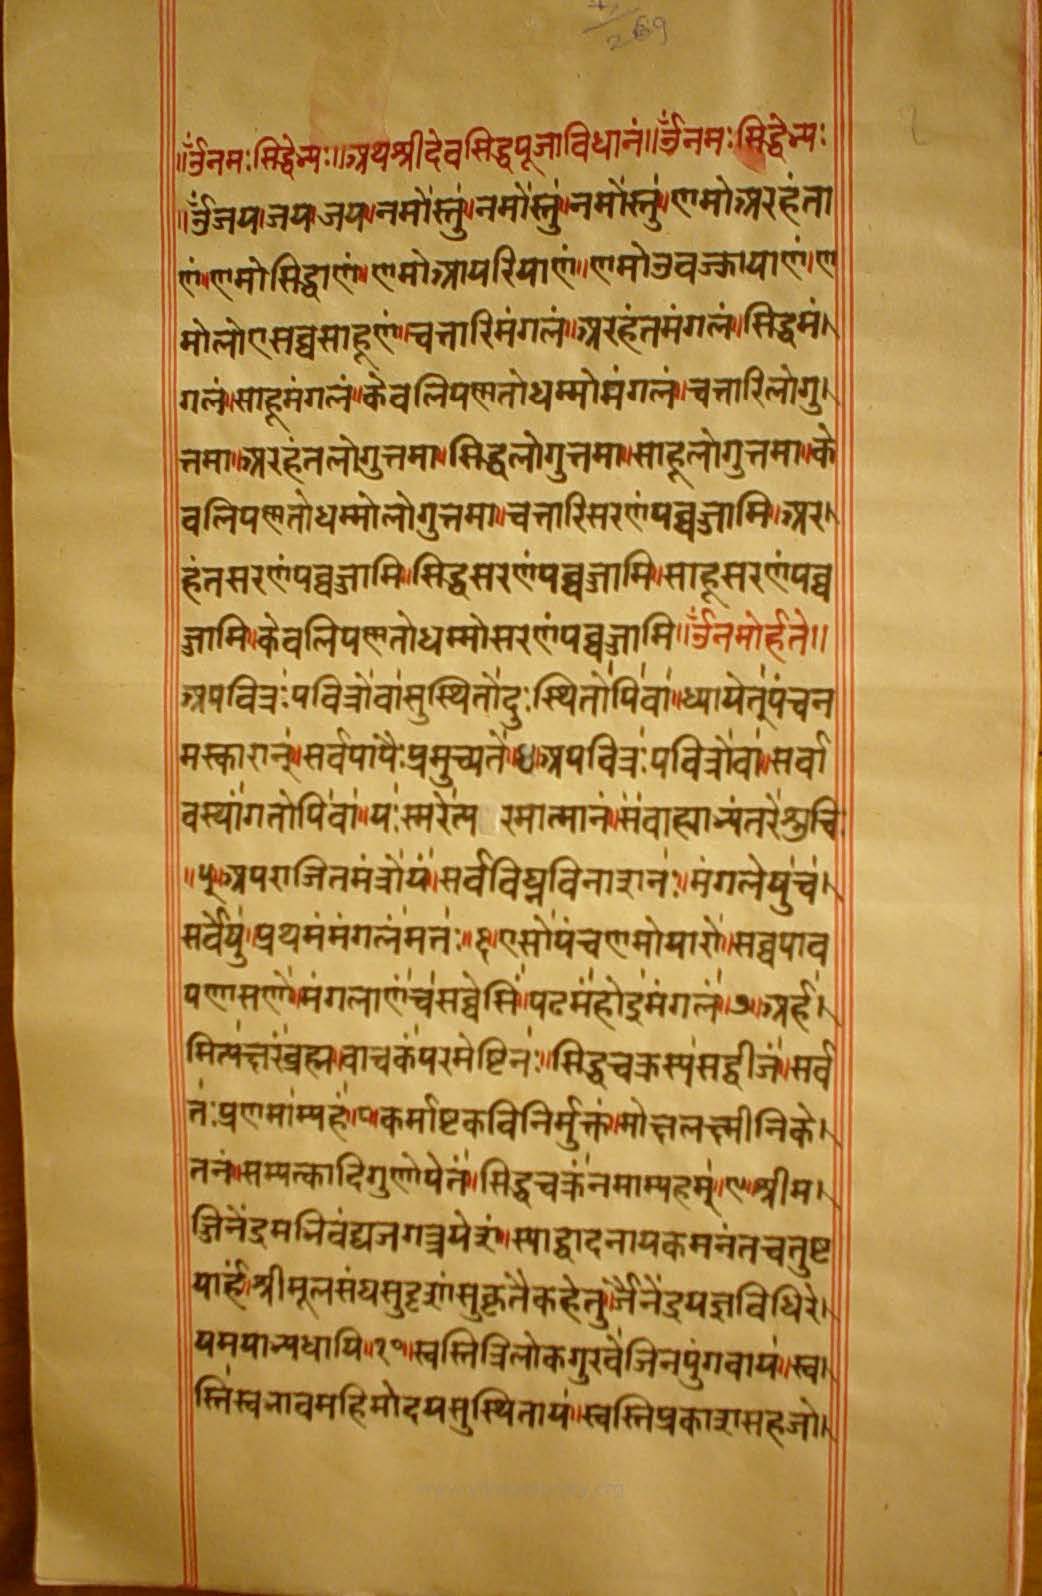 269
॥ॐनमःसिद्धेभ्यः॥अथश्रीदेवसिद्धपूजाविधानं॥ॐनमःसिद्धेभ्यः
॥ॐजय।जय।जय॥नमोस्तुं॥नमोस्तुं॥नमोस्तुं॥णमोअरहंता
णं॥णमोसिद्धाणं॥णमोआयरियाणं॥णमोउवज्झायाणं॥ण
मोलोएसव्वसाहूणं॥चत्तारिमंगलं॥अरहंतमंगलं॥सिद्धमं।
गलं॥साहूमंगलं॥केवलिपणत्तोधम्मोमंगलं॥चत्तारिलोगु।
त्तमा॥अरहंतलोगुत्तमा॥सिद्धलोगुत्तमा॥साहूलोगुत्तमा॥के
वलिपणत्तोधम्मोलोगुत्तमा॥चत्तारिसरणंपव्वज्जामि॥अर।
हंतसरणंपव्वज्जामि॥सिद्धसरणंपव्वज्जामि॥साहूसरणंपव्व
ज्जामि॥केवलिपणत्तोधम्मोसरणंपव्वज्जामि॥ॐनमोर्हते॥
अपवित्रःपवित्रोवासुस्थितोदुःस्थितोपिवा॥ध्यायेत्पंचन
मस्कारान्॥सर्वपापैःप्रमुच्यते॥४॥अपवित्रःपवित्रोवा॥सर्वा
वस्थांगतोपिवा॥यःस्मरेत्प रमात्मानं॥सवाह्याभ्यंतरेशुचि
॥५॥अपराजितमंत्रोयं॥सर्वविघ्नविनाशनः॥मंगलेषुच।
सर्वेषु॥प्रथमंमंगलंमतः॥६॥एसोपंचणमोयारो॥सव्वपाव
पणासणो॥मंगलाणंचसव्वेसिं॥पढमंहोइमंगलं॥७॥अर्ह।
मित्यक्षरंब्रह्म॥वाचकंपरमेष्टिनः॥सिद्धचक्रस्यसद्बीजं॥सर्व
तःप्रणमाम्यहं॥८॥कर्माष्टकविनिर्मुक्तं॥मोक्षलक्ष्मीनिके।
तनं॥सम्यत्कादिगुणोपेतं॥सिद्धचक्रंनमाम्यहम्॥९॥श्रीम।
ज्जिनेंद्रमभिवंद्यजगत्त्रयेशं॥स्याद्वादनायकमनंतचतुष्ट
यार्हं॥श्रीमूलसंघसुदृशांसुकृतैकहेतुं॥जैनेंद्रयज्ञविधिरे।
षमयाभ्यधायि॥१०॥स्वस्तित्रिलोकगुरवेजिनपुंगवाय॥स्व।
स्तिस्वभावमहिमोदयसुस्थिताय॥स्वस्तिप्रकाशसहजो।